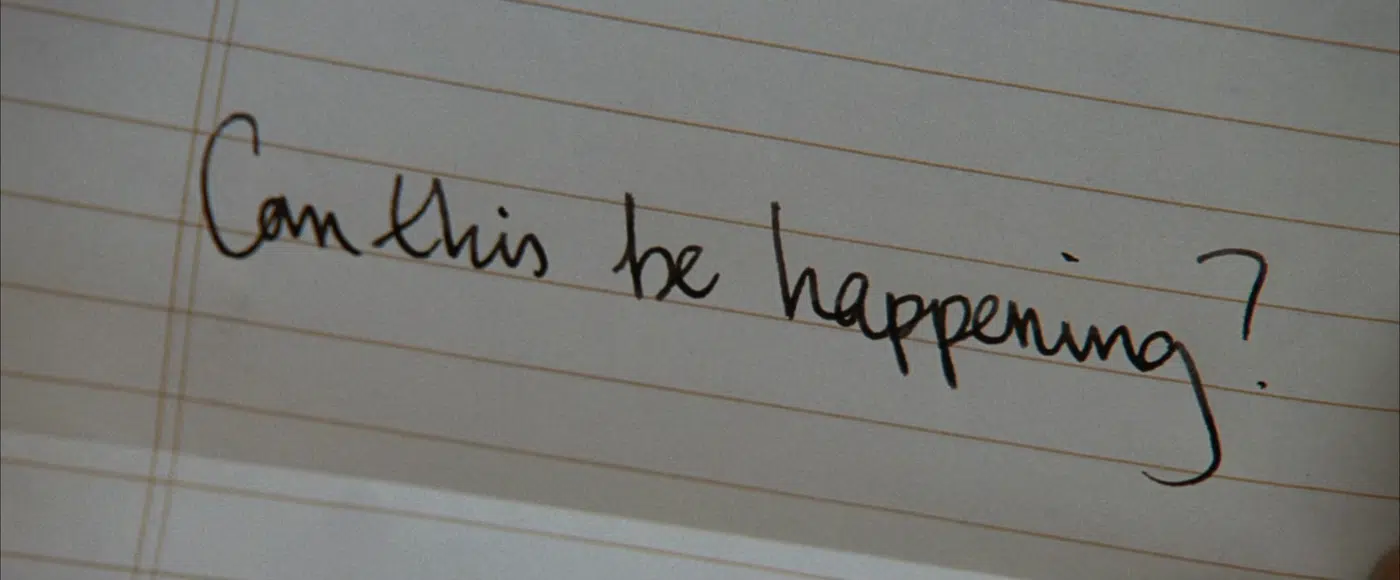 Can this be happening?